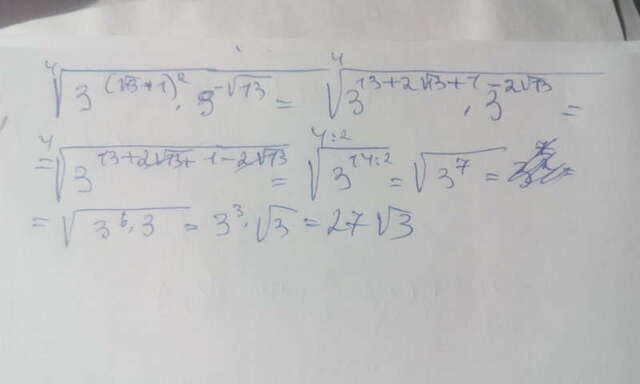 ⁴√(3^((√13+1)²) · 9^(-√13)) = ⁴√(3^(13+2√13+1) · 3^(-2√13)) =
= ⁴√(3^(13+2√13+1-2√13)) = ^(4:2)√(3^(14:2)) = √(3^7) =
= √(3^6 · 3) = 3^3 · √3 = 27√3